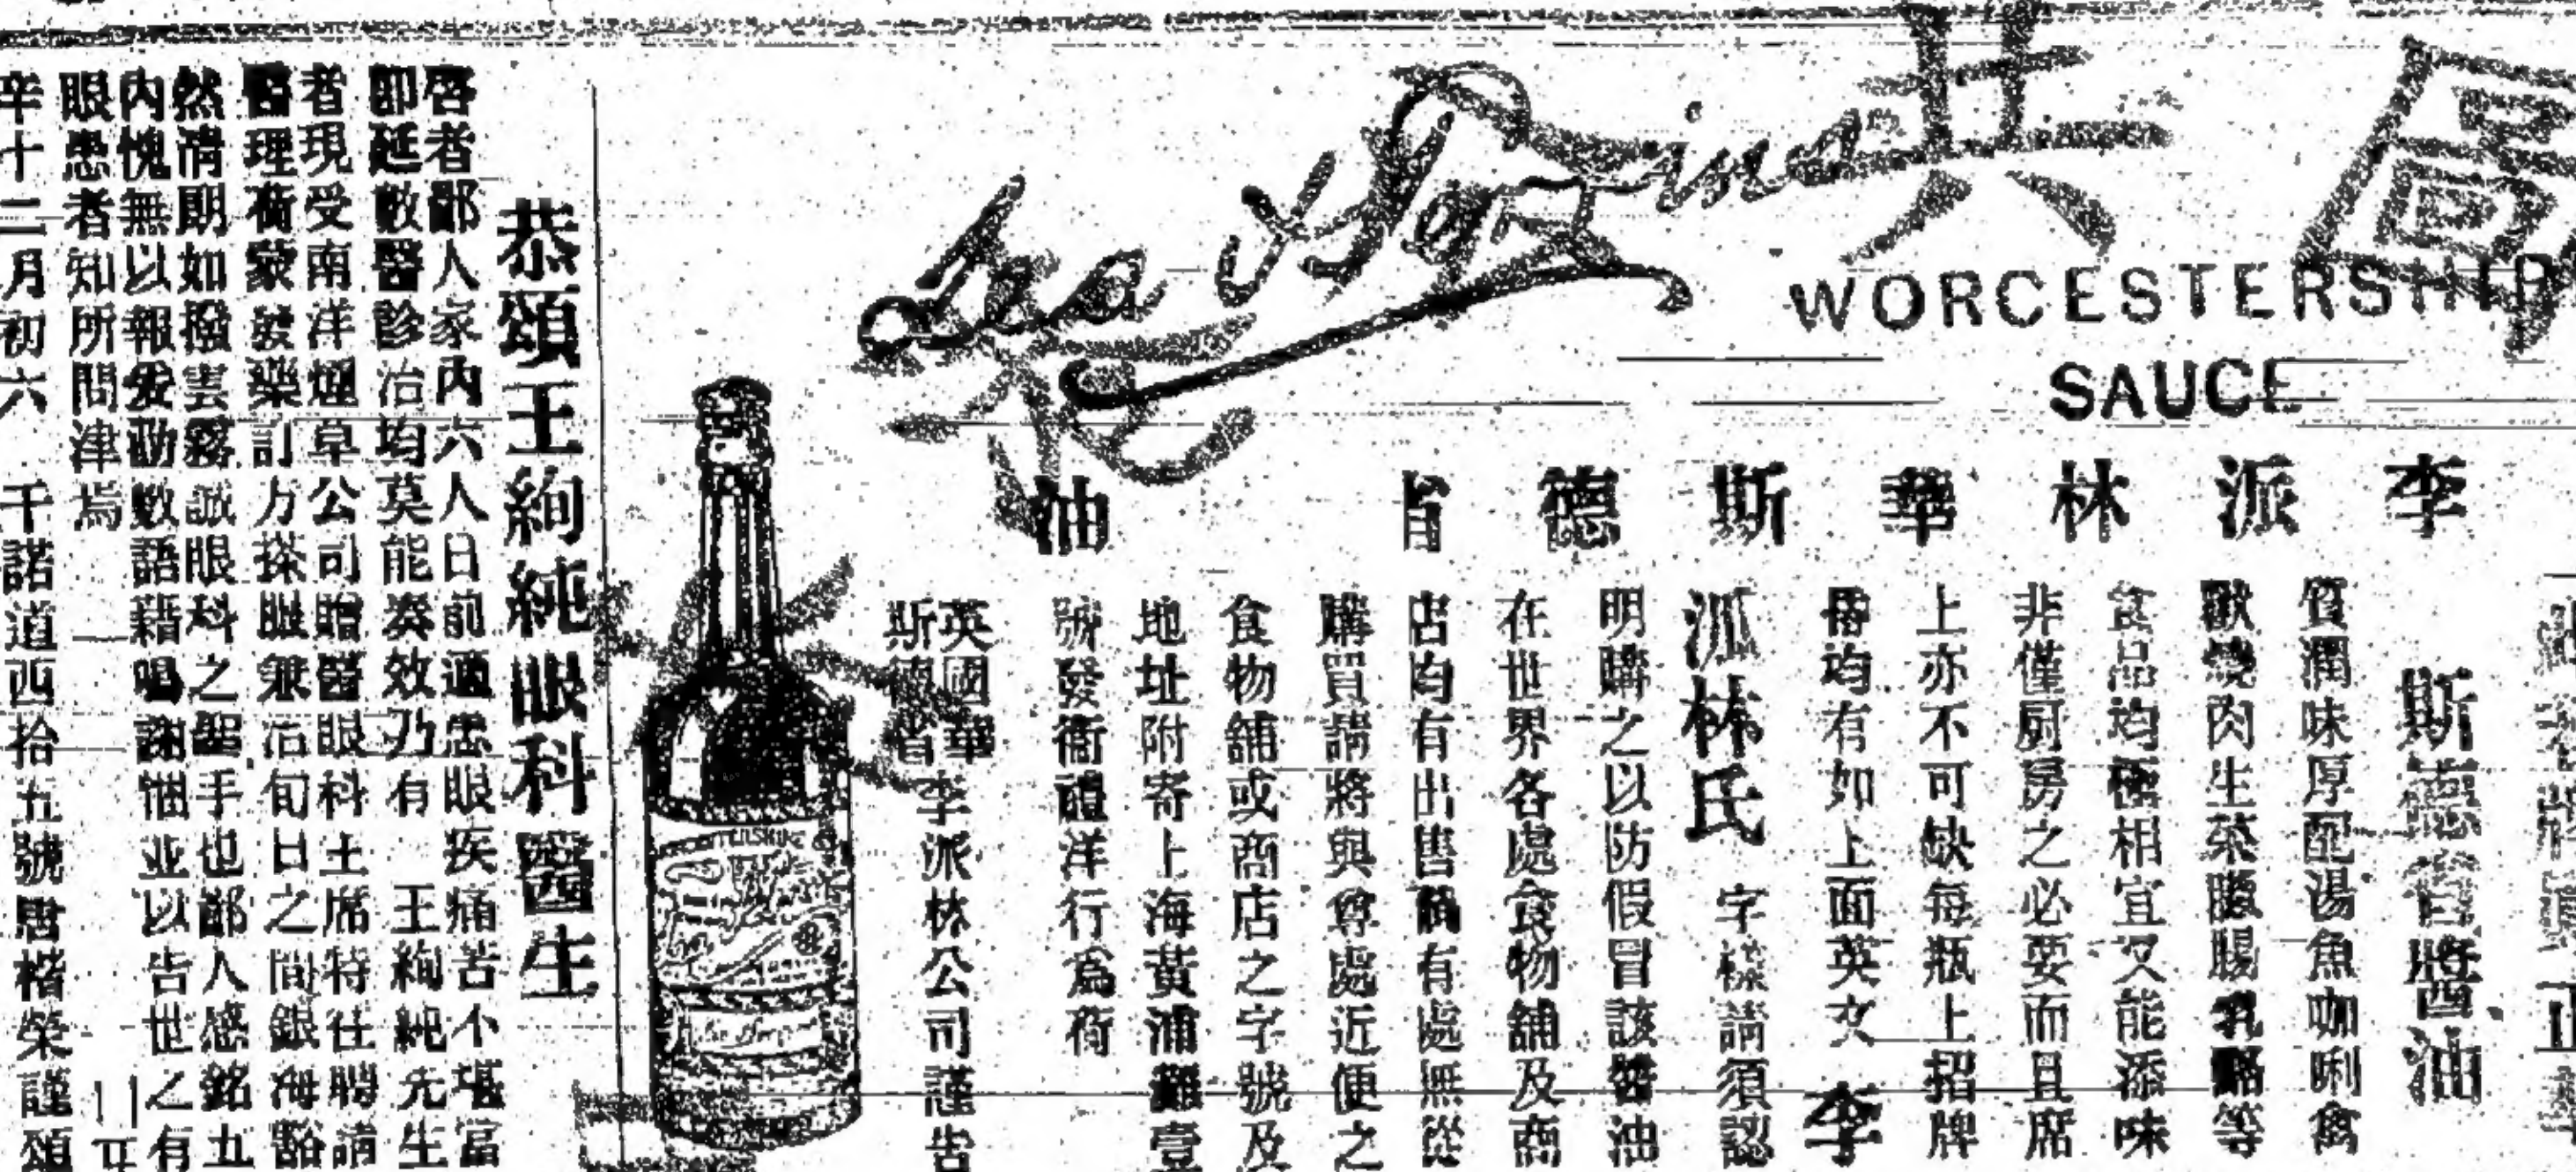 Lea & Perrins
WORCESTERSHIR
SAUCE
李派林華斯德省 油
斯德省醬油
質潤味厚配湯魚咖唎禽
獸燒肉生菜臘腸乳酪等
食品均極相宜又能添味
非僅厨房之必要而且席
上亦不可缺每瓶上招牌
均有如上面英文 李
派林氏 字樣請須認
明購之以防假冒該醬油
在世界各處食物舖及商
店均有出售倘有處無從
購買請將與尊處近便之
食物舖或商店之字號及
地址附寄上海黃浦灘壹
號發衞禮洋行爲荷
英國華
斯德省
李派林公司謹告
恭頌王絢純眼科醫生
啓者鄙人家內六人日前適患眼疾痛苦不堪當
卽延數醫診治均莫能奏效乃有 王絢純先生
者現受南洋烟草公司贈醫眼科主席特往聘請
醫理荷蒙發藥訂方搽服兼治旬日之間銀海豁
然淸朗如撥雲霧誠眼科之聖手也鄙人感銘五
內愧無以報爰勛數語藉唱謝悃並以告世之有
眼患者知所問津焉
辛十二月初六 干諾道西拾五號唐楷榮謹頌